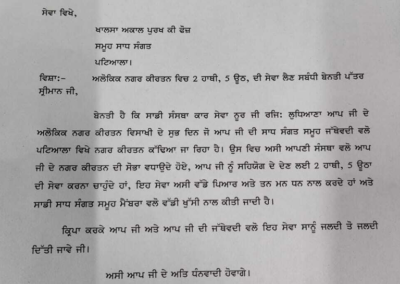 ਸੇਵਾ ਵਿਖੇ,
ਖਾਲਸਾ ਅਕਾਲ ਪੁਰਖ ਕੀ ਫੌਜ਼
ਸਮੂਹ ਸਾਧ ਸੰਗਤ
ਪਟਿਆਲਾ।
ਵਿਸ਼ਾ:- ਅਲੌਕਿਕ ਨਗਰ ਕੀਰਤਨ ਵਿਚ 2 ਹਾਥੀ, 5 ਊਠ, ਦੀ ਸੇਵਾ ਲੈਣ ਸਬੰਧੀ ਬੇਨਤੀ ਪੱਤਰ
ਸ਼੍ਰੀਮਾਨ ਜੀ,
ਬੇਨਤੀ ਹੈ ਕਿ ਸਾਡੀ ਸੰਸਥਾ ਕਾਰ ਸੇਵਾ ਨੂਰ ਜੀ ਰਜਿ: ਲੁਧਿਆਣਾ ਆਪ ਜੀ ਦੇ
ਅਲੌਕਿਕ ਨਗਰ ਕੀਰਤਨ ਵਿਸਾਖੀ ਦੇ ਸੁਭ ਦਿਨ ਜੋ ਆਪ ਜੀ ਦੀ ਸਾਧ ਸੰਗਤ ਸਮੂਹ ਜੱਥੇਵਦੀ ਵਲੋ
ਪਟਿਆਲਾ ਵਿਖੇ ਨਗਰ ਕੀਰਤਨ ਕੱਢਿਆ ਜਾ ਰਿਹਾ ਹੈ। ਉਸ ਵਿਚ ਅਸੀ ਆਪਣੀ ਸੰਸਥਾ ਵਲੋ ਆਪ
ਜੀ ਦੇ ਨਗਰ ਕੀਰਤਨ ਦੀ ਸੋਭਾ ਵਧਾਉਦੇ ਹੋਏ, ਆਪ ਜੀ ਨੂੰ ਸਹਿਯੋਗ ਦੇ ਦੇਣ ਲਈ 2 ਹਾਥੀ, 5 ਊਠਾ
ਦੀ ਸੇਵਾ ਕਰਨਾ ਚਾਹੁੰਦੇ ਹਾਂ, ਇਹ ਸੇਵਾ ਅਸੀ ਵੱਡੇ ਪਿਆਰ ਅਤੇ ਤਨ ਮਨ ਧਨ ਨਾਲ ਕਰਦੇ ਹਾਂ ਅਤੇ
ਸਾਡੀ ਸਾਧ ਸੰਗਤ ਸਮੂਹ ਮੈਂਬਰਾ ਵਲੋ ਵੱਡੀ ਖੁੱਸੀ ਨਾਲ ਕੀਤੀ ਜਾਦੀ ਹੈ।
ਕ੍ਰਿਪਾ ਕਰਕੇ ਆਪ ਜੀ ਅਤੇ ਆਪ ਜੀ ਦੀ ਜੱਥੇਵਦੀ ਵਲੋ ਇਹ ਸੇਵਾ ਸਾਨੂੰ ਜਲਦੀ ਤੋ ਜਲਦੀ
ਦਿੱਤੀ ਜਾਵੇ ਜੀ।
ਅਸੀ ਆਪ ਜੀ ਦੇ ਅਤਿ ਧੰਨਵਾਦੀ ਹੋਵਾਗੇ।